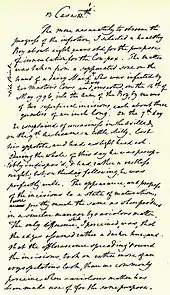 Case
The more accurately to observe the
progress of the infection, I selected a healthy
Boy about eight years old for the purpose
of inoculation for the Cow pox. The matter
was taken from a suppurated sore on the
hand of a dairy Maid, who was infected by
her Master's Cows and inserted on the 14th of
May 1796 into the arm of the Boy by means
of two superficial incisions, each about three
quarters of an inch long. On the 7th day
he complained of uneasiness in the axilla &
on the 9th he became a little chilly, lost
his appetite and had a slight head ach.
During the whole of this day he was percep
tibly indisposed, & had rather a restless
night; but on the day following he was
perfectly well. The appearance and progress
of the incisions to a state of maturation
were pretty much the same as when produced
in a similar manner by variolous matter.
The only difference I perceived was that
the edges assumed rather a darker hue, and
that the efflorescence spreading round
the incisions, took on rather more of an
erysipelatous look, than we commonly
perceive when variolous matter has
been made use of for the same purpose.